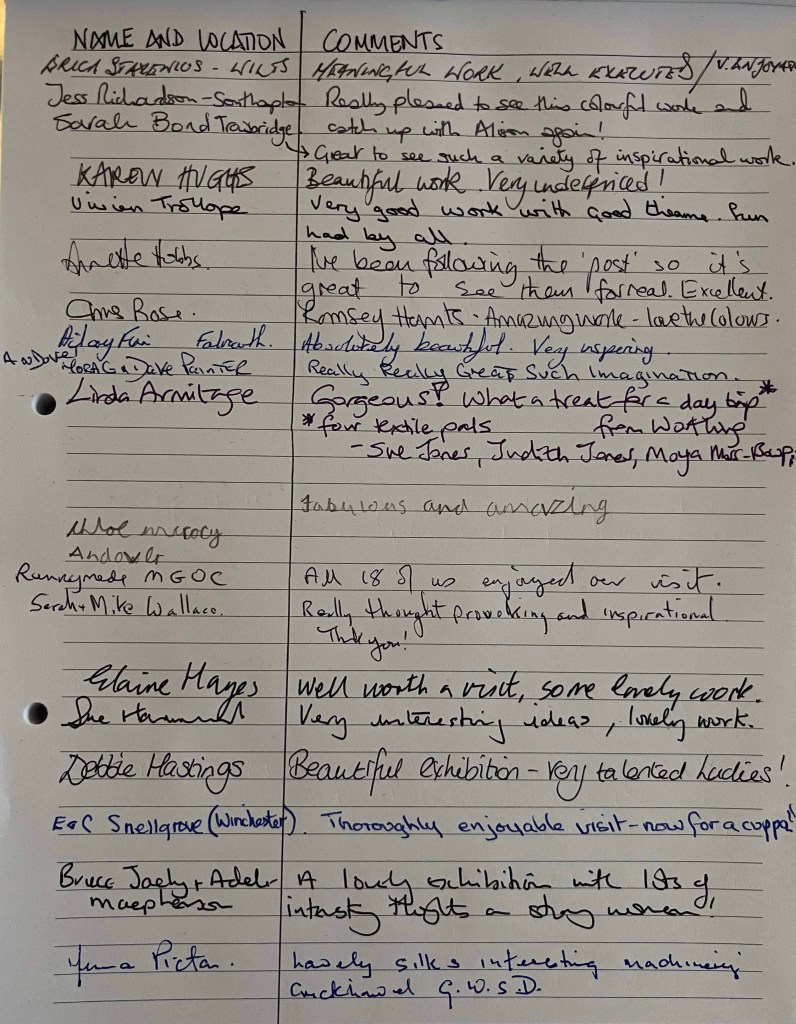 NAME AND LOCATION COMMENTS
- WILTS MEANINGFUL WORK, WELL EXECUTED / V. ENJOYABLE
Jess Richardson - Southampton Really pleased to see this colourful work and
Sarah Bond Trowbridge catch up with Alison again!
→ Great to see such a variety of inspirational work.
KAREN HUGHS Beautiful work. Very underpriced!
Vivien Trollope Very good work with good theme. Fun
had by all.
Annette Hobbs. I've been following the 'post' so it's
great to see them for real. Excellent.
Chris Rose. Romsey Hants. Amazing work - love the Colours.
Falmouth. Absolutely beautiful. Very inspiring.
Andover MORAG & Dave PAINTER Really Really Great Such Imagination.
Linda Armitage Gorgeous! What a treat for a day trip*
*four textile pals from Worthing
- Sue Jones, Judith Jones, Moya
fabulous and amazing
Andover
Runnymede MGOC All 18 of us enjoyed our visit.
Sarah + Mike Wallace. Really thought provoking and inspirational
Thank you!
Elaine Hayes Well worth a visit, some lovely work.
Sue Very interesting ideas, lovely work.
Debbie Hastings Beautiful exhibition - very talented Ladies!
E & C Snellgrove (Winchester). Thoroughly enjoyable visit - now for a cuppa!
Bruce + A lovely exhibition with lots of
Macpherson thoughts on strong women!
Picton. Lovely silks interesting machining
Crickhowel G.W.S.D.